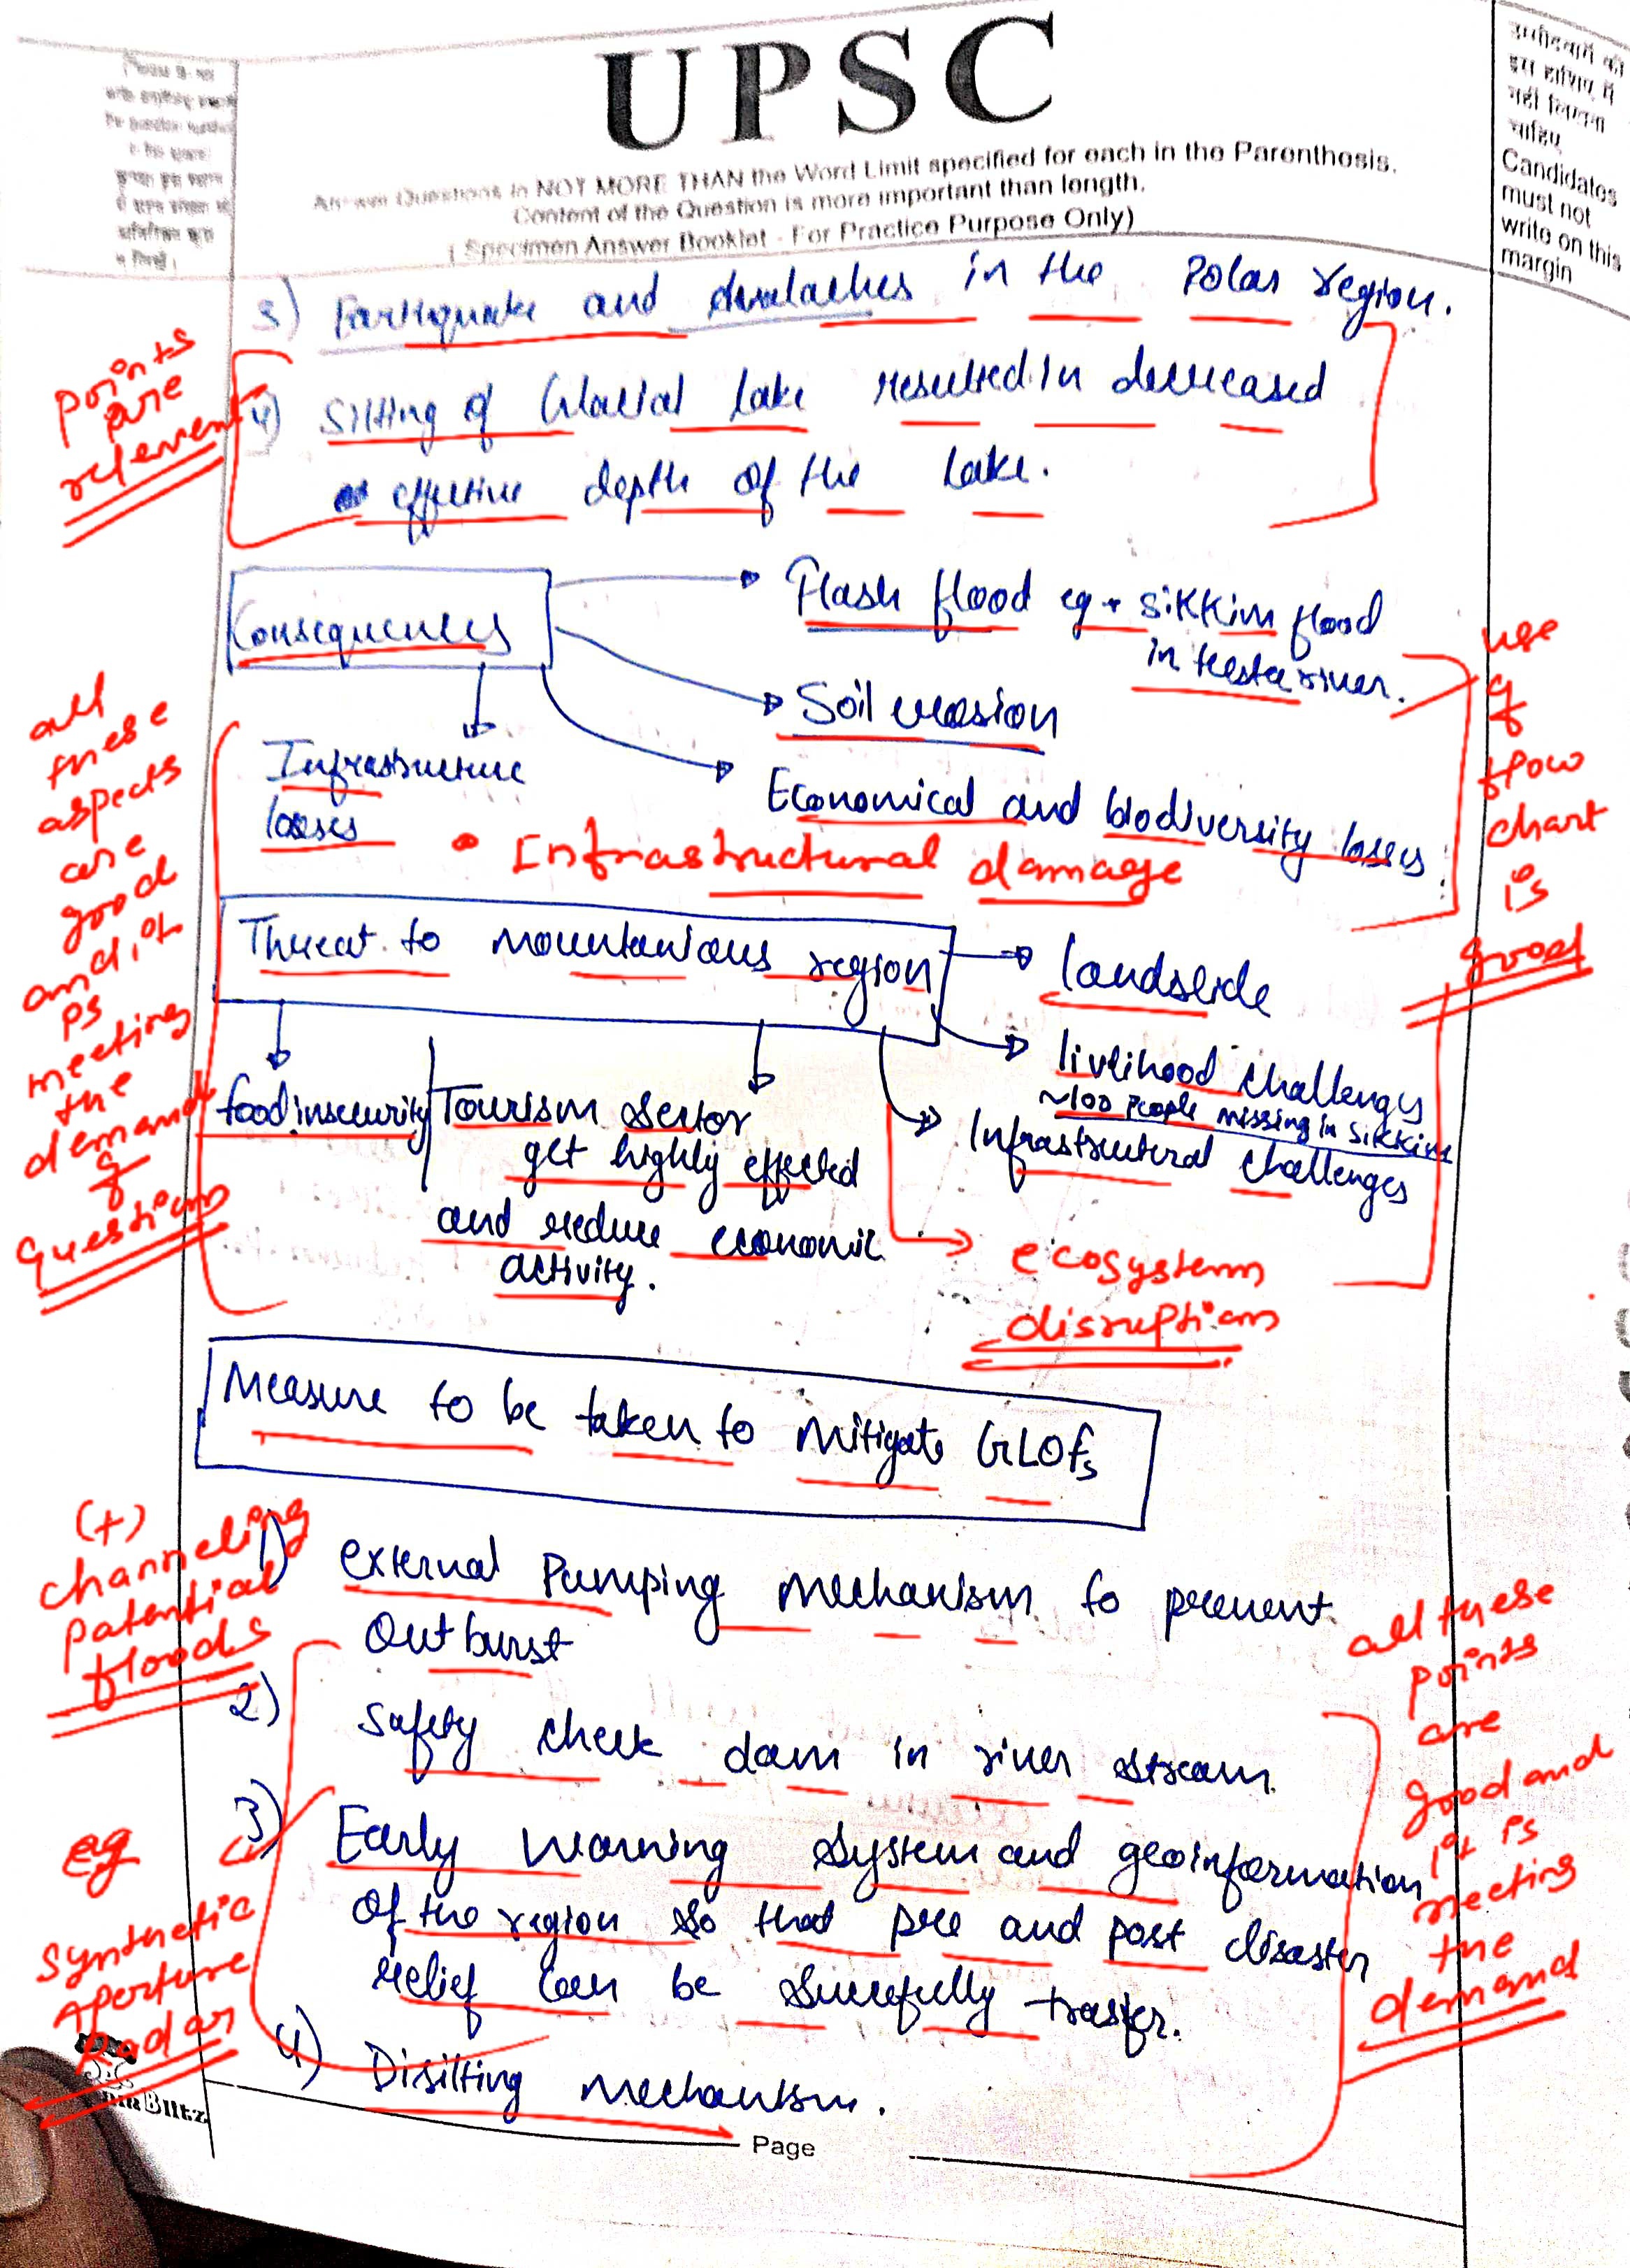 UPSC
उम्मीदवारों को
इस हाशिए में
नहीं लिखना
चाहिए
Candidates
must not
write on this
margin
Answer Questions in NOT MORE THAN the Word Limit specified for each in the Parenthesis.
Content of the Question is more important than length.
( Specimen Answer Booklet - For Practice Purpose Only)
3) Earthquake and Avalaches in the Polar region.
points
are
relevent
4) Silting of Glacial lake resulted in decreased
effective depth of the lake.
Consequences
Flash flood eg → Sikkim flood
in teesta river.
Soil erosion
Economical and biodiversity losses
Infrastructure
losses
• Infrastructural damage
use
of
flow
chart
is
good
all
these
aspects
are
good
and it
is
meeting
the
demand
of
question
Threat to mountanious region
landslide
livlihood challenges
~100 people missing in Sikkim
Infrastructural challenges
food insecurity
Tourism sector
get highly effected
and reduce economic
activity.
ecosystem
disruption
Measure to be taken to mitigate GLOFs
(+)
channeling
potential
floods
1) external Pumping mechanism to prevent
Outburst
2) Safety check dam in river stream.
3) Early warning system and geoinformation
of the region so that pre and post disaster
relief can be succefully trasfer.
4) Disilting mechanism.
eg
synthetic
Aperture
Radar
all these
points
are
good and
it is
meeting
the
demand
Blitz
Page